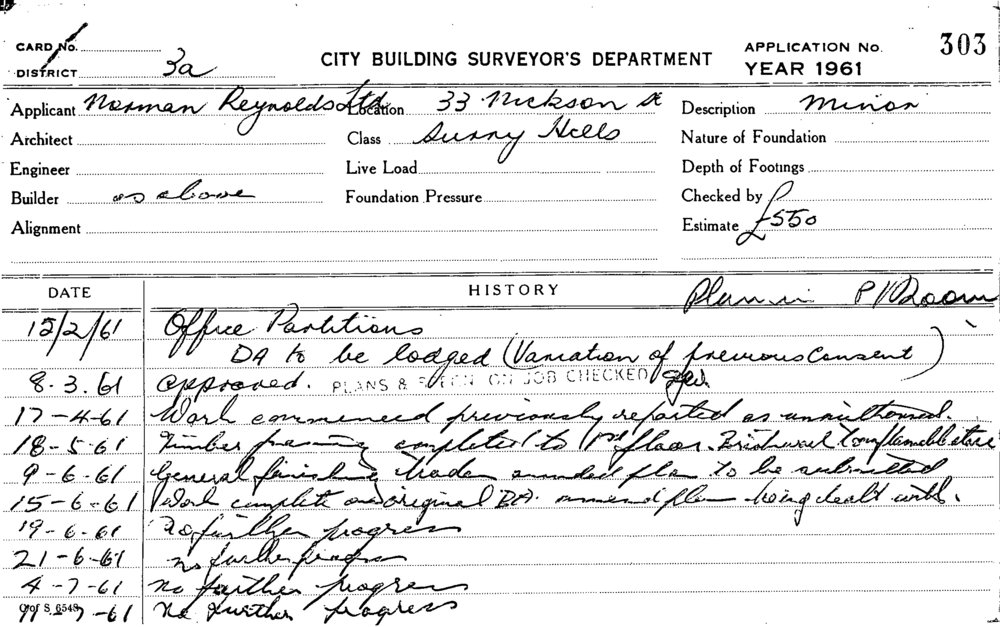 CARD No.
DISTRICT 3a
CITY BUILDING SURVEYOR'S DEPARTMENT
APPLICATION No. 303
YEAR 1961
Applicant Norman Reynolds Ltd Location 33 Nickson St Description Minor
Architect Class Surry Hills Nature of Foundation
Engineer Live Load Depth of Footings
Builder as above Foundation Pressure Checked by
Alignment Estimate £550
DATE HISTORY Plan in P V Room
15/2/61 Office Partitions
DA to be lodged (Variation of previous Consent)
8.3.61 approved. PLANS & SPECN ON JOB CHECKED
17-4-61 Work commenced previously reported as unauthorised.
18-5-61 Timber framing completed to 1st floor. Brickwork to inflamable store
9-6-61 General finishing trades amended plan to be submitted
15-6-61 Work complete on original BA. amend plan being dealt with.
19-6-61 No further progress
21-6-61 no further progress
4-7-61 No further progress
11-7-61 No further progress
C of S 6548